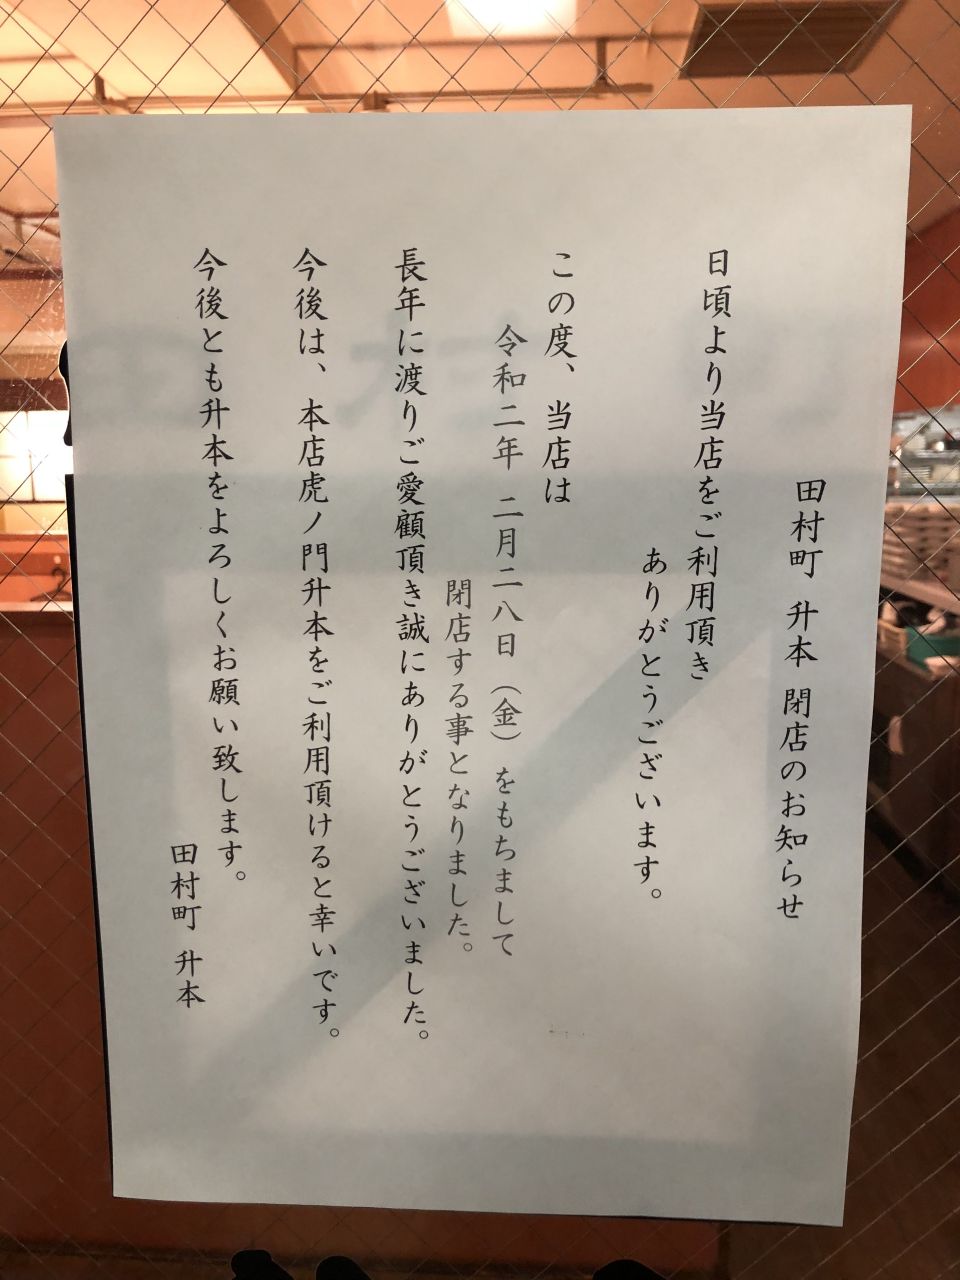 田村町 升本 閉店のお知らせ
日頃より当店をご利用頂き
ありがとうございます。
この度、当店は
令和二年 二月二八日（金）をもちまして
閉店する事となりました。
長年に渡りご愛顧頂き誠にありがとうございました。
今後は、本店虎ノ門升本をご利用頂けると幸いです。
今後とも升本をよろしくお願い致します。
田村町 升本